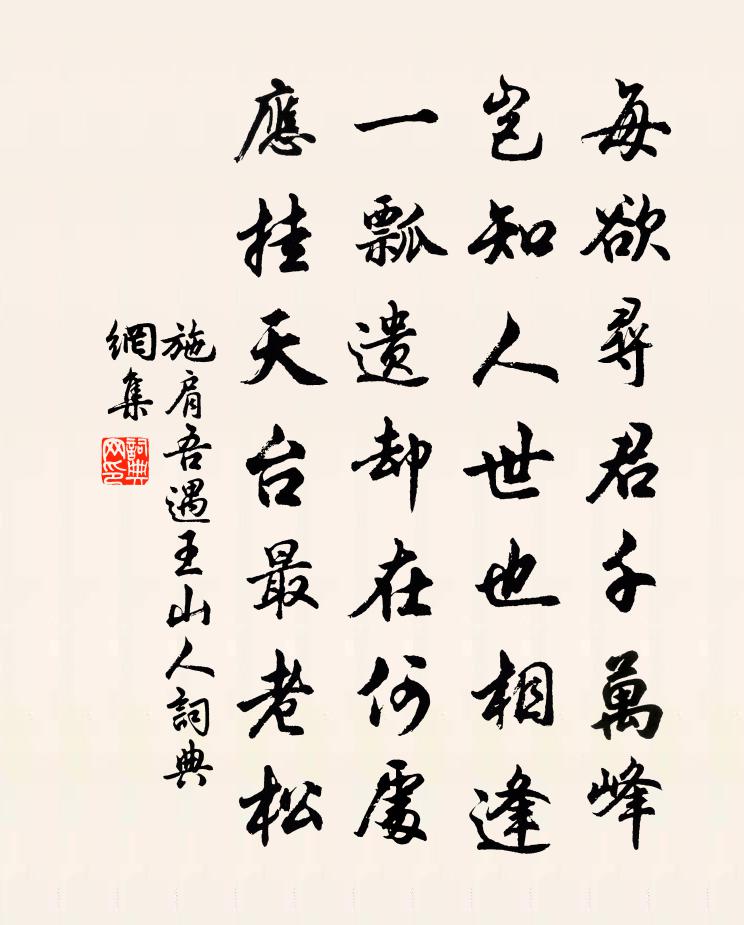 每欲尋君千萬峰
豈知人世也相逢
一瓢遺却在何處
應挂天台最老松
施肩吾遇王山人詞典
網集
詞典網印